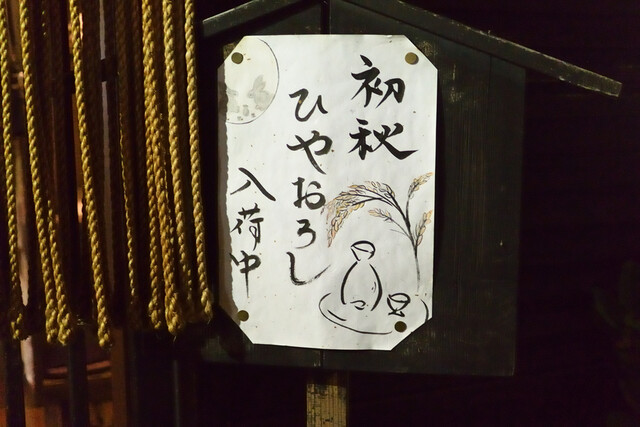 初秋
ひやおろし
入荷中